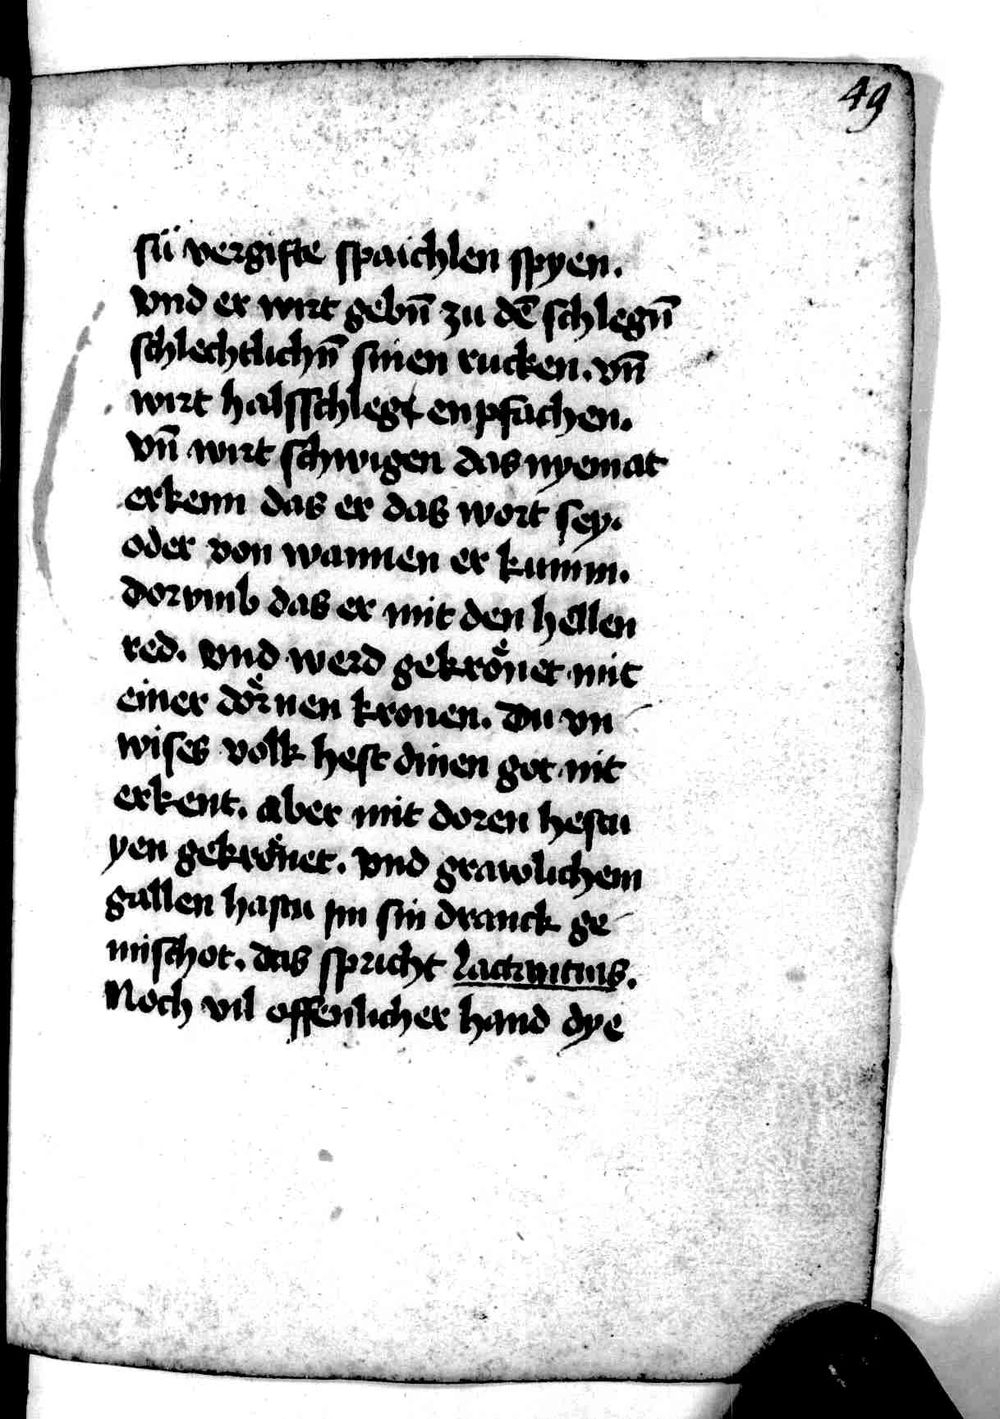 49
sü vergifte spaichlen spyen.
vnd er wirt gebn̄ zu dē schlegn̄
schlechtlichn̄ sinen rucken. vn̄
wirt halsschlegt enpfachen.
vn̄ wirt schwigen das nyemat
erkenn das er das wort sey.
oder von wannen er kumm.
dorvmb das er mit den hellen
red. vnd werd gekrönet mit
einer dörnen kronen. Du vn
wises volk hest dinen got nit
erkent. aber mit doren hestu
yen gekrönet. vnd grawlichem
gallen hastu im sin dranck ge
mischot. das spricht lactantius.
Noch vil offenlicher hand dye